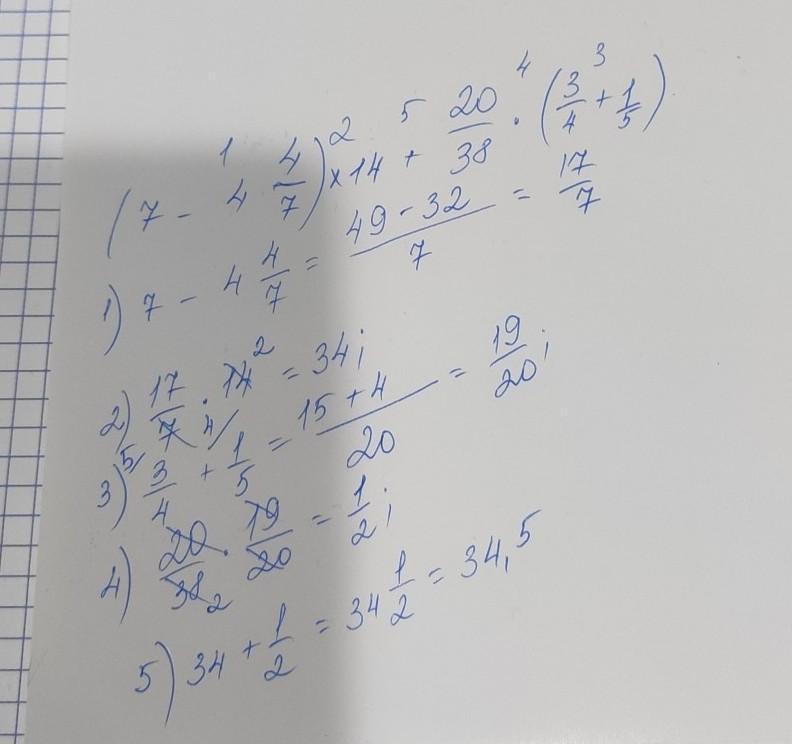 (7 - 4 4/7) × 14 + 20/38 · (3/4 + 1/5)
1) 7 - 4 4/7 = (49 - 32)/7 = 17/7
2) 17/7 · 14 = 34;
3) 3/4 + 1/5 = (15 + 4)/20 = 19/20;
4) 20/38 · 19/20 = 1/2;
5) 34 + 1/2 = 34 1/2 = 34,5